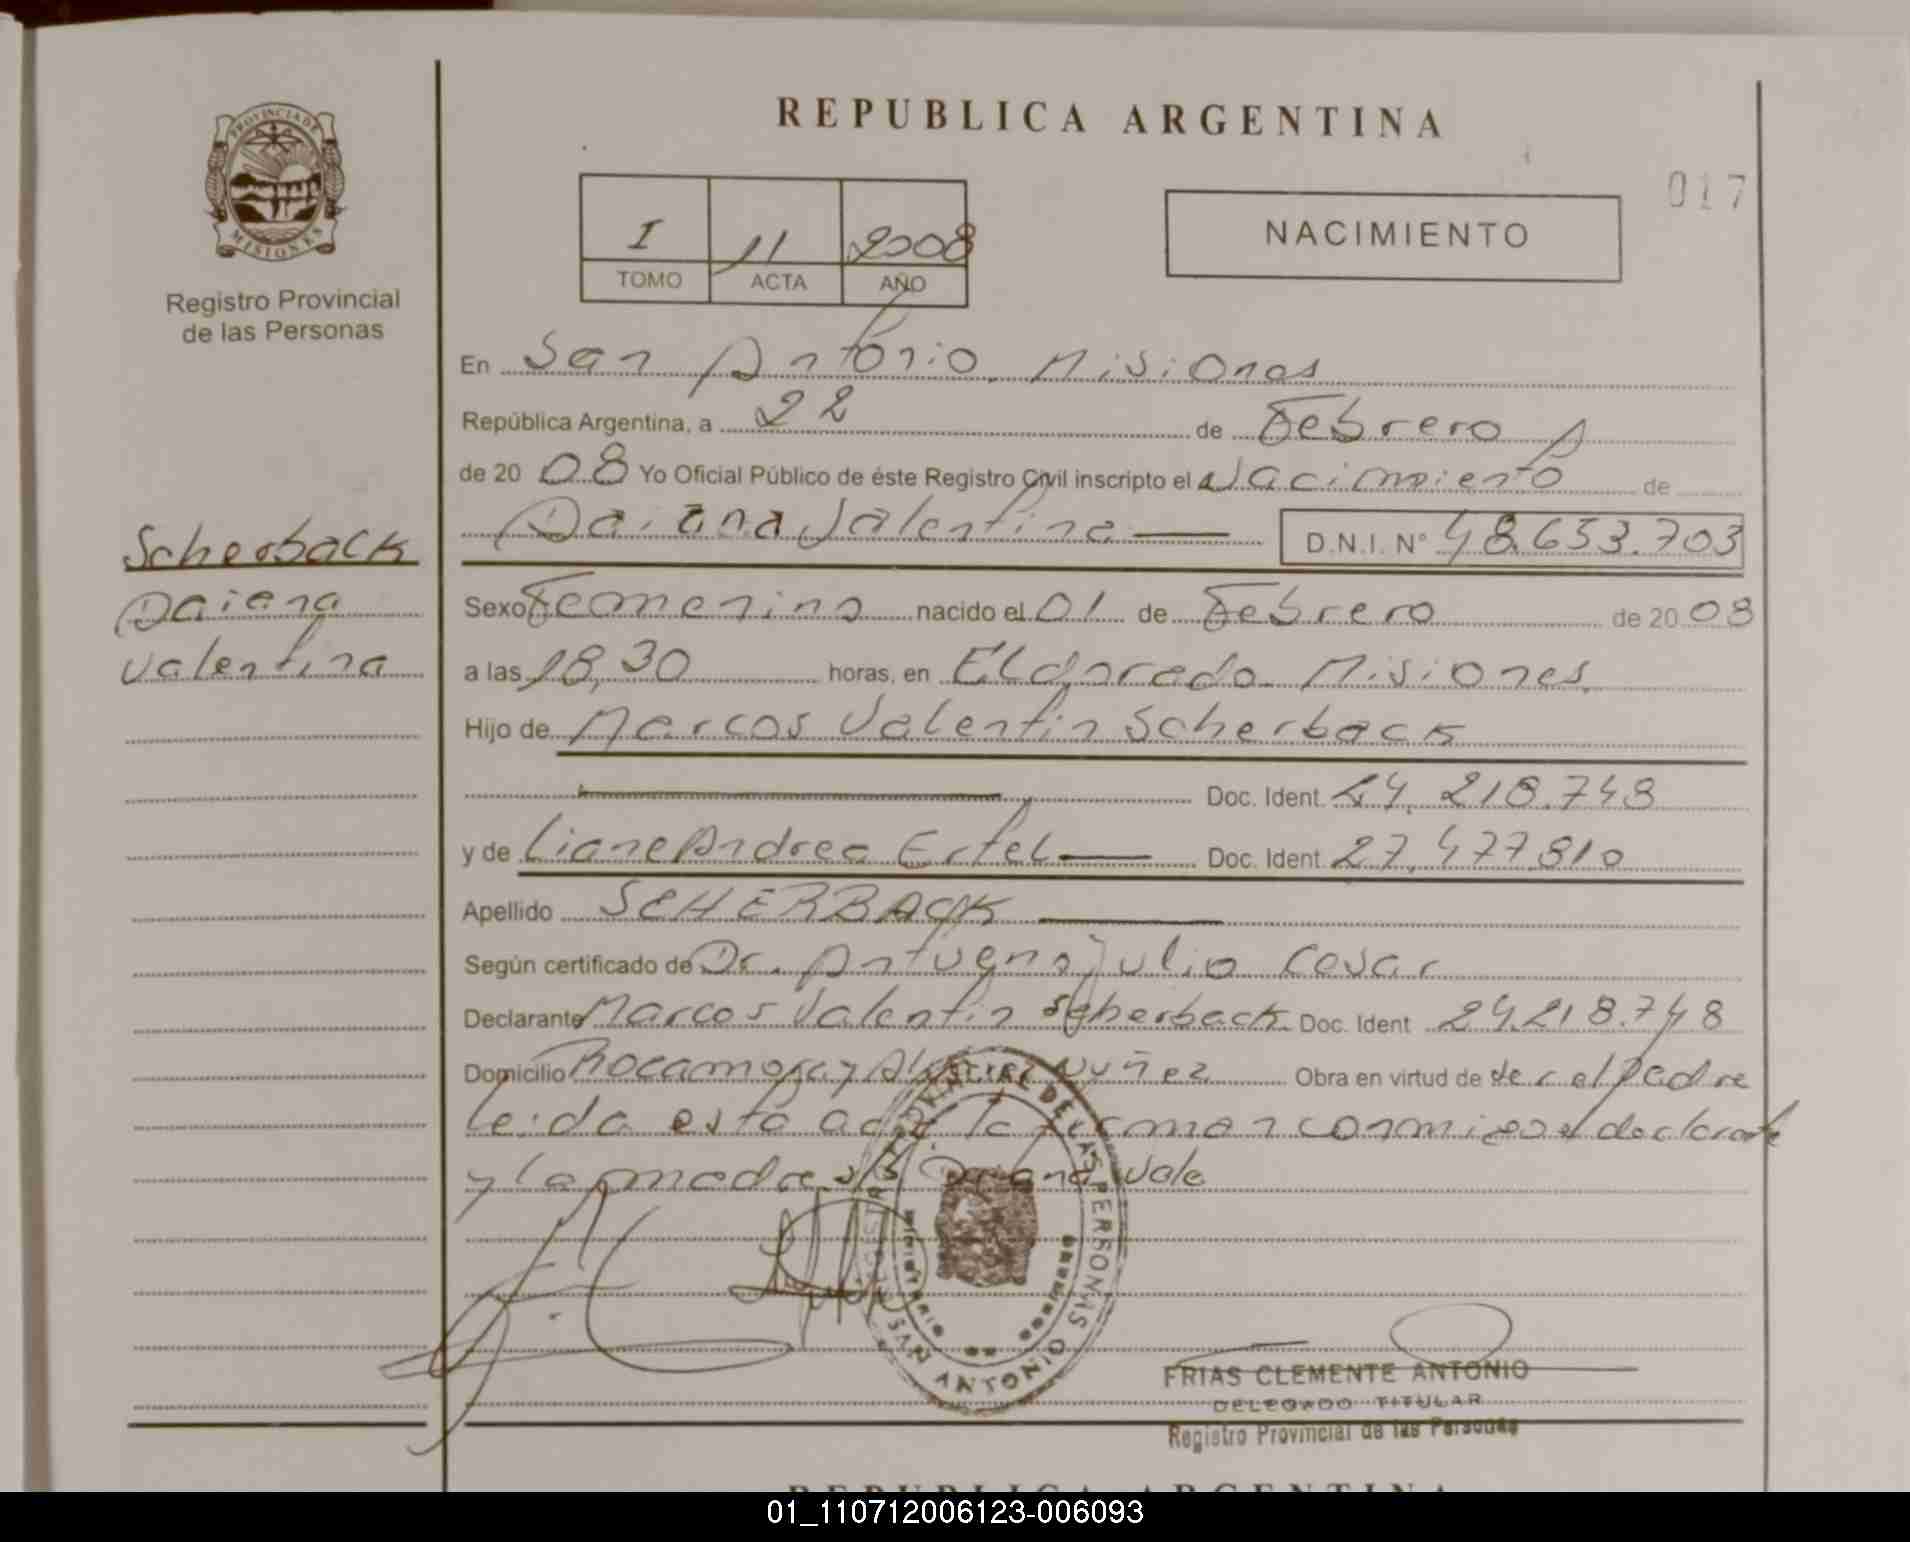 REPUBLICA ARGENTINA
PROVINCIA DE
MISIONES
Registro Provincial
de las Personas
I 11 2008
TOMO ACTA AÑO
NACIMIENTO
017
En San Antonio. Misiones
República Argentina, a 22 de Febrero
de 20 08 Yo Oficial Público de éste Registro Civil inscripto el Nacimiento de
Daiana Valentina D.N.I. N° 48.653.703
Scherback
Daiana
Valentina
Sexo Femenino nacido el 01 de Febrero de 20 08
a las 18,30 horas, en Eldorado. Misiones.
Hijo de Marcos Valentin Scherback
Doc. Ident. 24.218.748
y de Liane Andrea Ertel Doc. Ident. 27.477.810
Apellido SCHERBACK
Según certificado de Dr. Julio Cesar
Declarante Marcos Valentin Scherback Doc. Ident 24.218.748
Domicilio Rocamora y Nuñez Obra en virtud de ser el Padre
Leida esta acta la firman conmigo el declarante
y la madre. Daiana Vale
DE LAS PERSONAS
SAN ANTONIO
FRIAS CLEMENTE ANTONIO
DELEGADO TITULAR
Registro Provincial de las Personas
REPUBLICA ARGENTINA
01_110712006123-006093